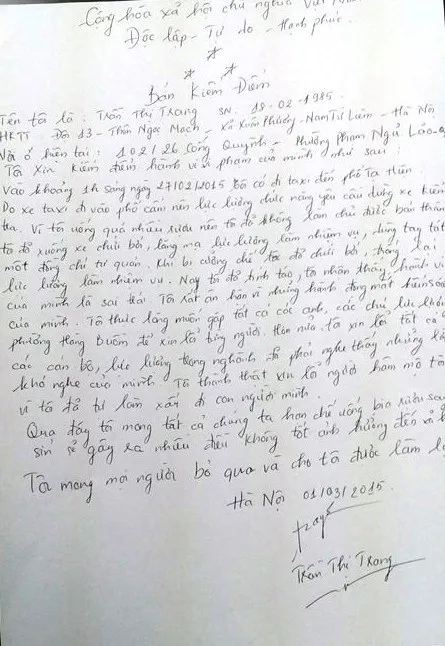 Cộng hòa xã hội chủ nghĩa Việt Nam
Độc lập - Tự do - Hạnh phúc.
Bản Kiểm Điểm
Tên tôi là: Trần Thị Trang SN: 18-02-1985.
HKTT - Đội 13 - Thôn Ngọc Mạch - xã Xuân Phương - Nam Từ Liêm - Hà Nội
Nơi ở hiện tại: 102/26 Cống Quỳnh - Phường Phạm Ngũ Lão - Q
Tôi Xin kiểm điểm hành vi vi phạm của mình như sau:
Vào khoảng 1h sáng ngày 27/02/2015 tôi có đi taxi đến phố Tạ Hiện.
Do xe taxi đi vào phố cấm nên lực lượng chức năng yêu cầu dừng xe kiểm
tra. Vì tôi uống quá nhiều rượu nên tôi đã không làm chủ được bản thân
tôi đã xuống xe chửi bới, lăng mạ lực lượng làm nhiệm vụ, dùng tay tát
một đồng chí tự quản. Khi bị cưỡng chế tôi đã chửi bới, chống lại
lực lượng làm nhiệm vụ. Nay tôi đã tỉnh táo, tôi nhận thấy hành vi
của mình là sai trái. Tôi rất ân hận vì những hành động mất kiểm soát
của mình. Tôi thực lòng muốn gặp tất cả các anh, các chú lực lượng
phường Hàng Buồm để xin lỗi từng người. Hơn nữa, tôi xin lỗi tất cả
các cán bộ, lực lượng trong nghành đã phải nghe thấy những lời
khó nghe của mình. Tôi thành thật xin lỗi người hâm mộ tôi
vì tôi đã tự làm xấu đi con người mình.
Qua đây tôi mong tất cả chúng ta hạn chế uống bia rượu say
sỉn sẽ gây ra nhiều điều không tốt ảnh hưởng đến xã hội
Tôi mong mọi người bỏ qua và cho tôi được làm lại
Hà Nội 01/03/2015.
Trang
Trần Thị Trang